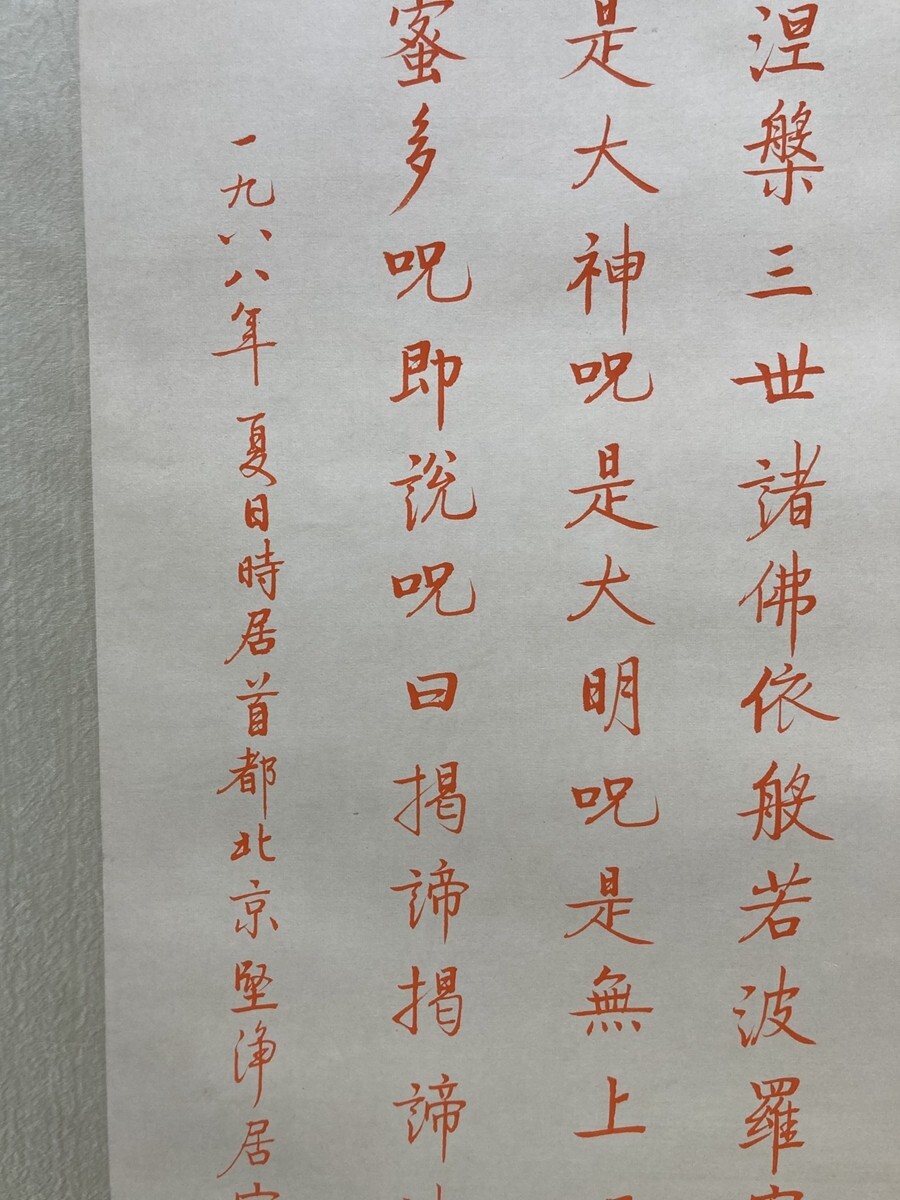 涅槃三世諸佛依般若波羅
是大神咒是大明咒是無上
蜜多咒即說咒曰揭諦揭諦
一九八八年夏日時居首都北京堅淨居